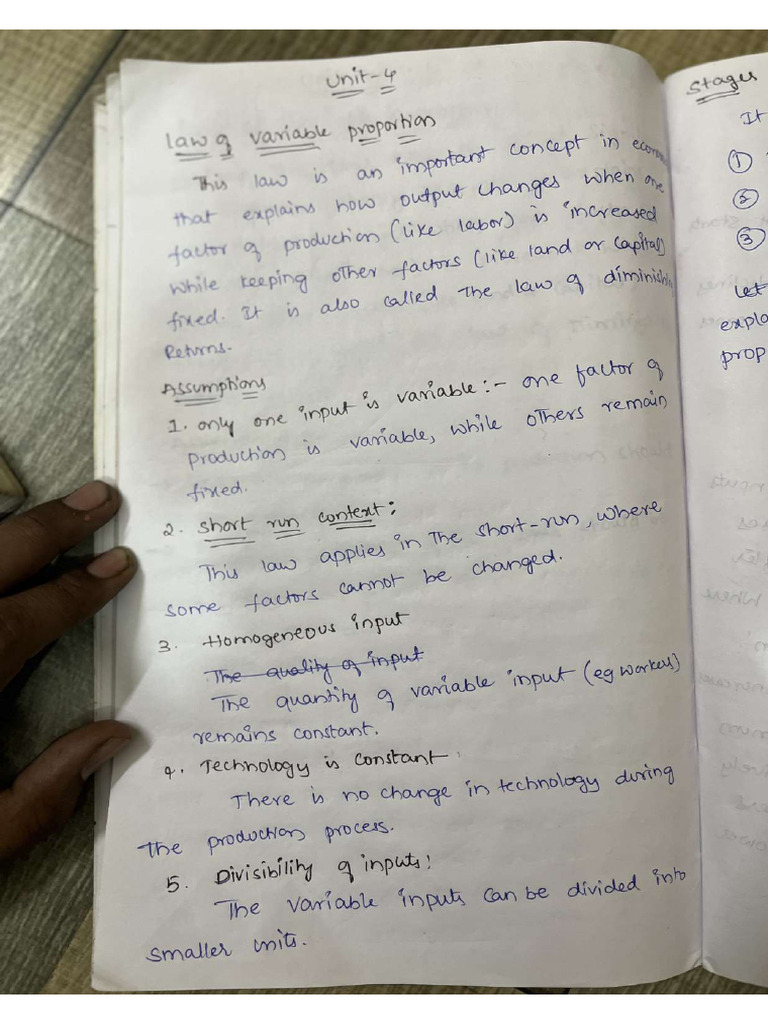 Unit-4
Law of variable proportion
This law is an important concept in econom
that explains how output changes when one
factor of production (like labor) is increased
while keeping other factors (like land or capital)
fixed. It is also called the law of diminishin
Returns.
Assumptions
1. only one input is variable:- one factor of
production is variable, while others remain
fixed.
2. short run context:
This law applies in the short-run, where
some factors cannot be changed.
3. Homogeneous input
The quality of input
The quantity of variable input (eg workers)
remains constant.
4. Technology is constant:
There is no change in technology during
the production process.
5. Divisibility of inputs:
The variable inputs can be divided into
smaller units.
Stages
It
①
②
③
Let
expla
prop